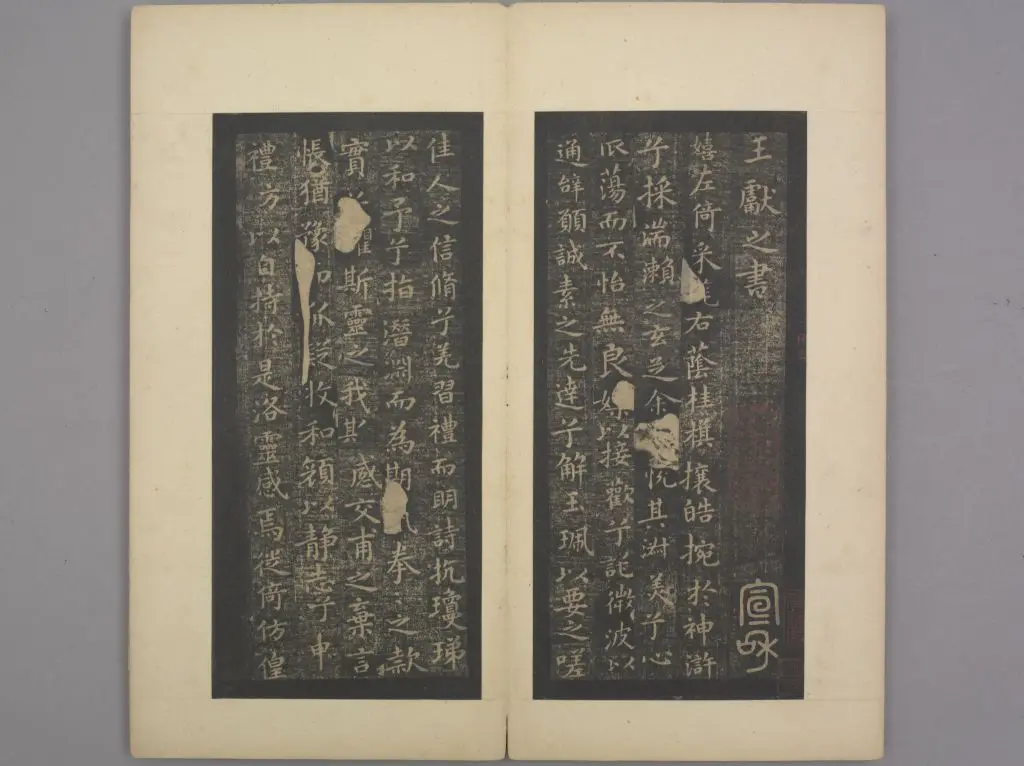 王獻之書
宣和
嬉左倚采右蔭桂旗攘皓捥於神滸
兮採湍瀨之玄芝余悅其淑美兮心
振蕩而不怡無良以接歡兮託微波以
通辭願誠素之先達兮解玉珮以要之嗟
佳人之信脩兮羌習禮而明詩抗瓊珶
以和予兮指潛淵而為期拳〻之款
實懼斯靈之我欺感交甫之棄言
悵猶豫而狐疑收和顏以靜志兮申
禮方以自持於是洛靈感焉徙倚仿偟